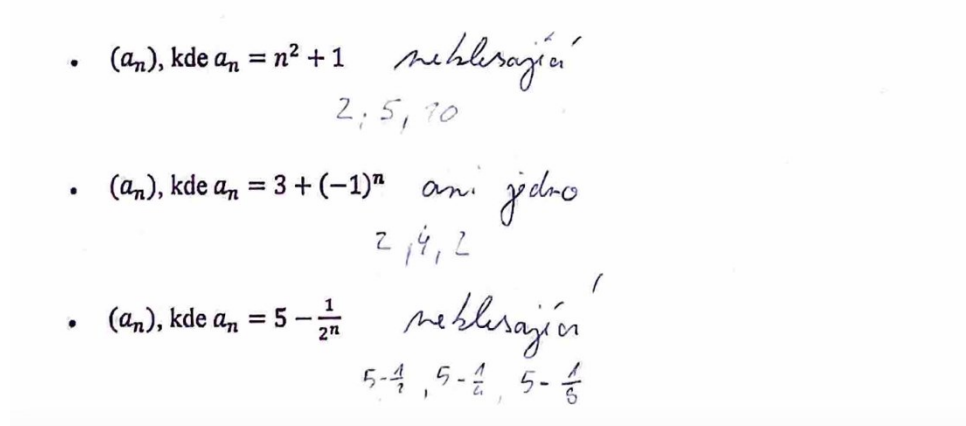 • (aₙ), kde aₙ = n² + 1 neklesající
2, 5, 10
• (aₙ), kde aₙ = 3 + (−1)ⁿ ani jedno
2, 4, 2
• (aₙ), kde aₙ = 5 − 1/2ⁿ neklesající
5-1/2, 5-1/4, 5-1/8